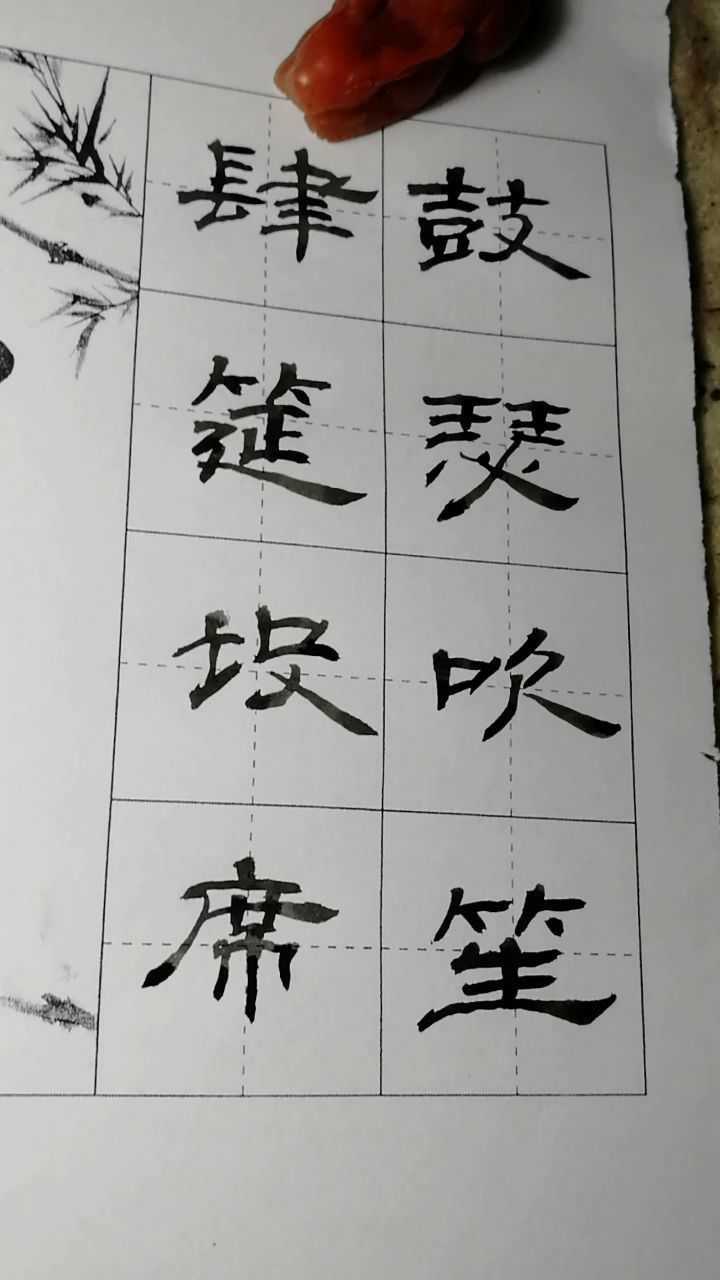 鼓瑟吹笙
肆筵设席